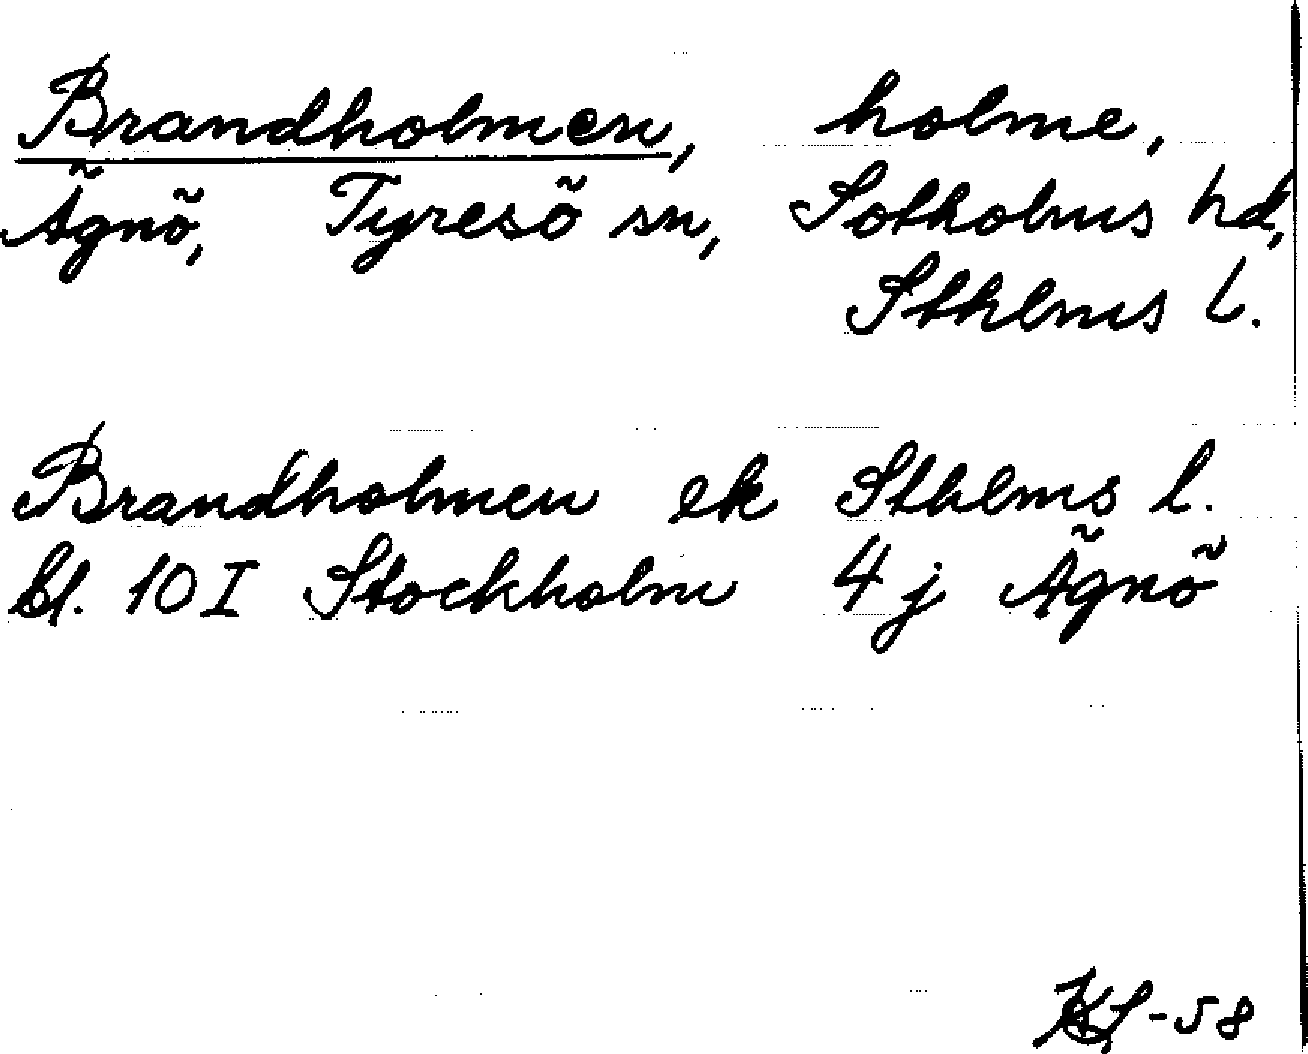 Brandholmen, holme,
Ägnö, Tyresö sn, Sotholms hd,
Sthlms l.
Brandholmen ek Sthlms l.
bl. 10 I Stockholm 4 j Ägnö
-58